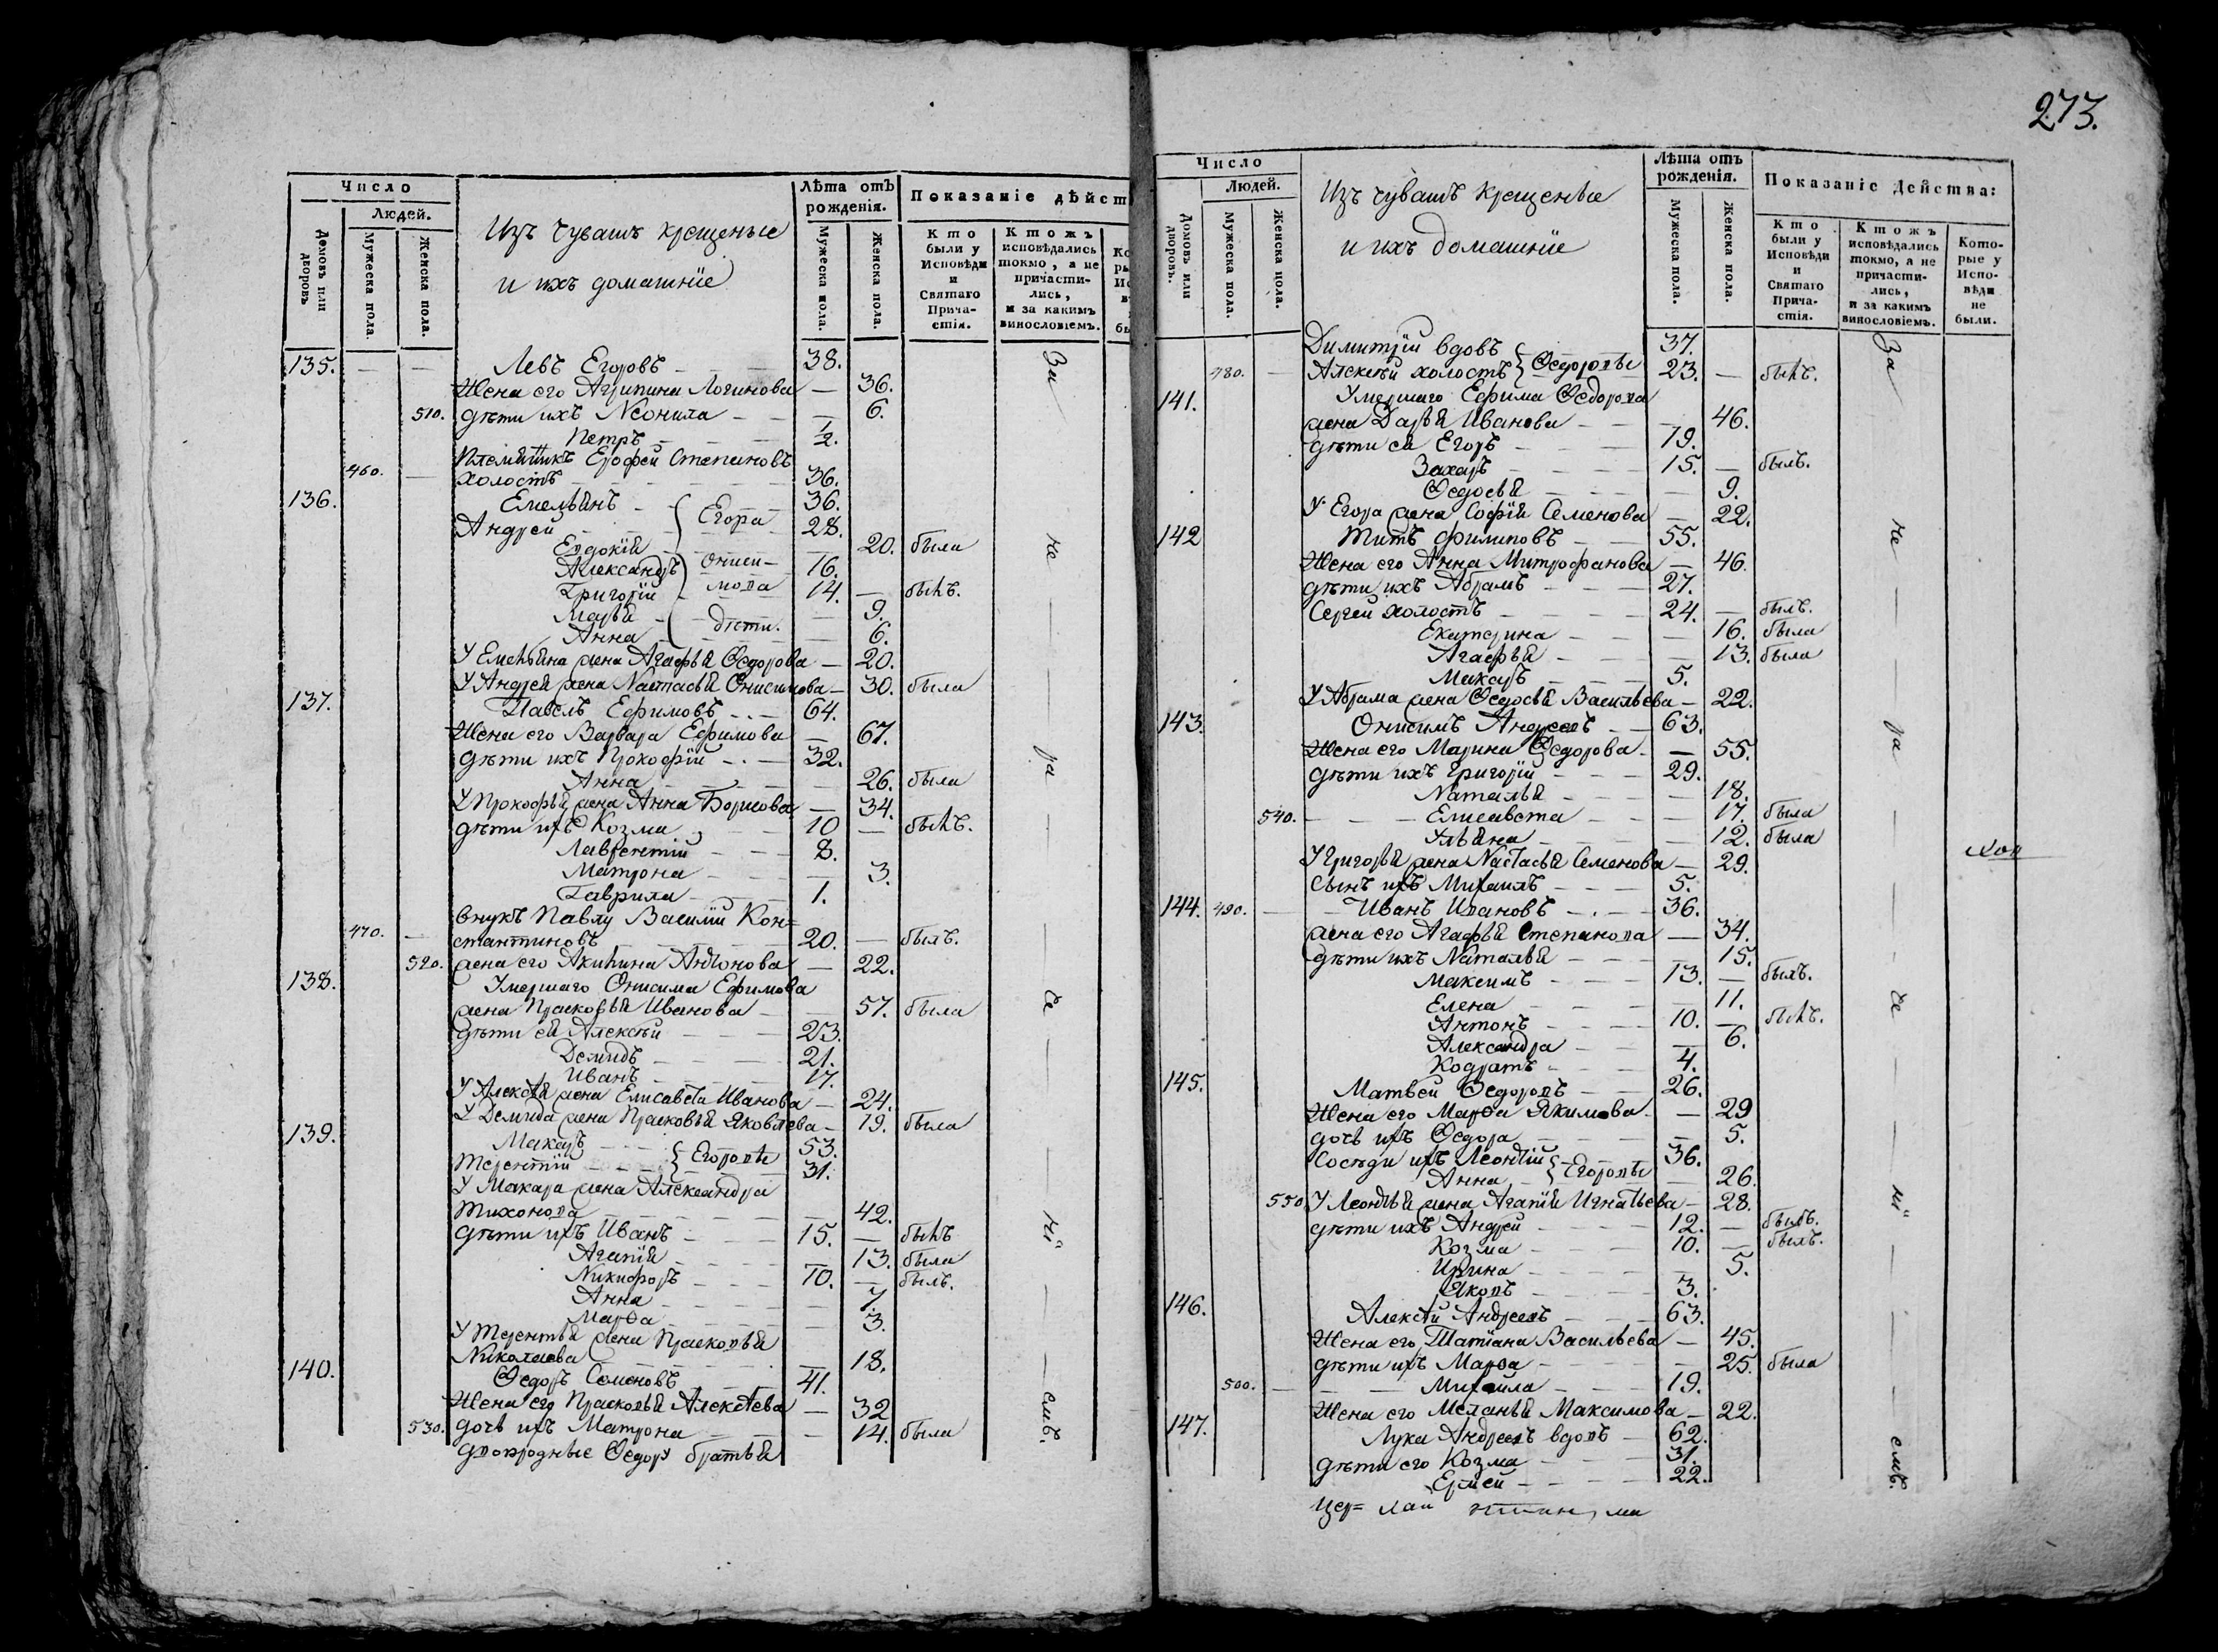 Число
Людей.
Домовъ или дворовъ
Мужеска пола.
Женска пола.
Изъ чувашъ крещеные
и ихъ домашніе
Лѣта отъ рожденія.
Мужеска пола.
Женска пола.
Показаніе дѣйст
Кто были у Исповѣди и Святаго Прича-стія.
Ктожъ исповѣдались токмо, а не причасти-лись, и за какимъ винословіемъ.
За не ра че ні емъ.
135. — — Левъ Егоровъ — 38.
Жена его Агрипина Логинова — 36.
510. дѣти ихъ Неонила — — 6.
Петръ — 1/2.
Племянникъ Ерофей Степановъ
460. — холостъ — 36.
136. Емельянъ — { Егора — 36.
Андрей — 28.
Евдокія — 20. была
Александръ } Ониси- — 16.
Григорій — мова 14. — былъ.
Марья — 9.
Анна — дѣти. — 6.
У Емельяна жена Агафья Ѳедорова — 20.
У Андрея жена Настасья Онисимова — 30. была
137. Павелъ Ефимовъ — 64.
Жена его Варвара Ефимова — 67.
дѣти ихъ Прокофій — 32.
Анна — 26. была
У Прокофья жена Анна Борисова — 34.
дѣти ихъ Козма — 10 — былъ.
Лаврентій — 8.
Матрона — 3.
Гаврила — 1.
внукъ Павлу Василій Кон=
470. — стантиновъ — 20. — былъ.
520. жена его Акилина Антонова — 22.
138. Умершаго Онисима Ефимова
жена Прасковья Иванова — 57. была
дѣти ея Алексѣй — 23.
Демидъ — 21.
Иванъ — 17.
У Алексѣя жена Елисавета Иванова — 24.
У Демида жена Прасковья Яковлева — 19. была
139. Макаръ — { Егоровы 53.
Терентій — 31.
У Макара жена Александра
Тихонова — 42.
дѣти ихъ Иванъ — 15. — былъ
Агапія — 13. была
Никифоръ — 10. — былъ.
Анна — 7.
Марѳа — 3.
У Терентья жена Прасковья
Николаева — 18.
140. Ѳедоръ Семеновъ — 41.
Жена его Прасковья Алексѣева — 32
530. дочь ихъ Матрона — 14. была
двоюродные Ѳедору братья
273.
Число
Людей.
Домовъ или дворовъ.
Мужеска пола.
Женска пола.
Изъ чувашъ крещеные
и ихъ домашніе
Лѣта отъ рожденія.
Мужеска пола.
Женска пола.
Показаніе действа:
Кто были у Исповѣди и Святаго Прича-стія.
Ктожъ исповѣдались токмо, а не причасти-лись, и за какимъ винословіемъ.
Кото-рые у Испо-вѣди не были.
За не ра че ні емъ.
Димитрій вдовъ { Ѳедоровы 37.
480. — Алексѣй холостъ 23. — былъ.
141. Умершаго Ефима Ѳедорова
жена Дарья Иванова — 46.
дѣти ея Егоръ — 19.
Захаръ — 15. — былъ.
Ѳедосья — 9.
У Егора жена Софія Семенова — 22.
142 Титъ Филиповъ — 55.
Жена его Анна Митрофанова — 46.
дѣти ихъ Абрамъ — 27.
Сергей холостъ — 24. — былъ.
Екатерина — 16. была
Агафья — 13. была
Макаръ — 5.
У Абрама жена Ѳедосья Васильева — 22.
143. Онисимъ Андреевъ — 63.
Жена его Марина Ѳедорова — 55.
дѣти ихъ Григорій — 29.
Наталья — 18.
540. — Елисавета — 17. была
Ульяна — 12. была
У Григорья жена Настасья Семенова — 29.
сынъ ихъ Михаилъ — 5.
144. 490. — Иванъ Ивановъ — 36.
жена его Агафья Степанова — 34.
дѣти ихъ Наталья — 15.
Максимъ — 13. — былъ.
Елена — 11.
Антонъ — 10. — былъ.
Александра — 6.
Кодратъ — 4.
145. Матвей Ѳедоровъ — 26.
Жена его Марѳа Якимова — 29
дочь ихъ Ѳедора — 5.
Сосѣди ихъ Леонтій { Егоровы 36.
Анна — 26.
550 У Леонтья жена Агапія Игнатьева — 28.
дѣти ихъ Андрей — 12. — былъ.
Козма — 10. — былъ.
Ирина — 5.
Яковъ — 3.
146. Алексѣй Андреевъ — 63.
Жена его Татіана Васильева — 45.
дѣти ихъ Марѳа — 25. была
500. — Михаила — 19.
Жена его Меланья Максимова — 22.
147. Лука Андреевъ вдовъ — 62.
дѣти его Козма — 31.
Ермей — 22.